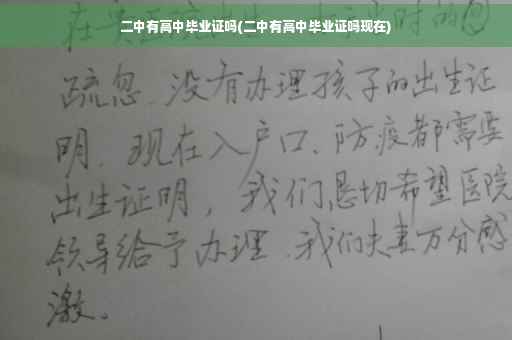 二中有高中毕业证吗(二中有高中毕业证吗现在)
在 时的
疏忽、没有办理孩子的出生证
明。现在入户口、防疫都需要
出生证明，我们恳切希望医院
领导给予办理，我们夫妻万分感
激。